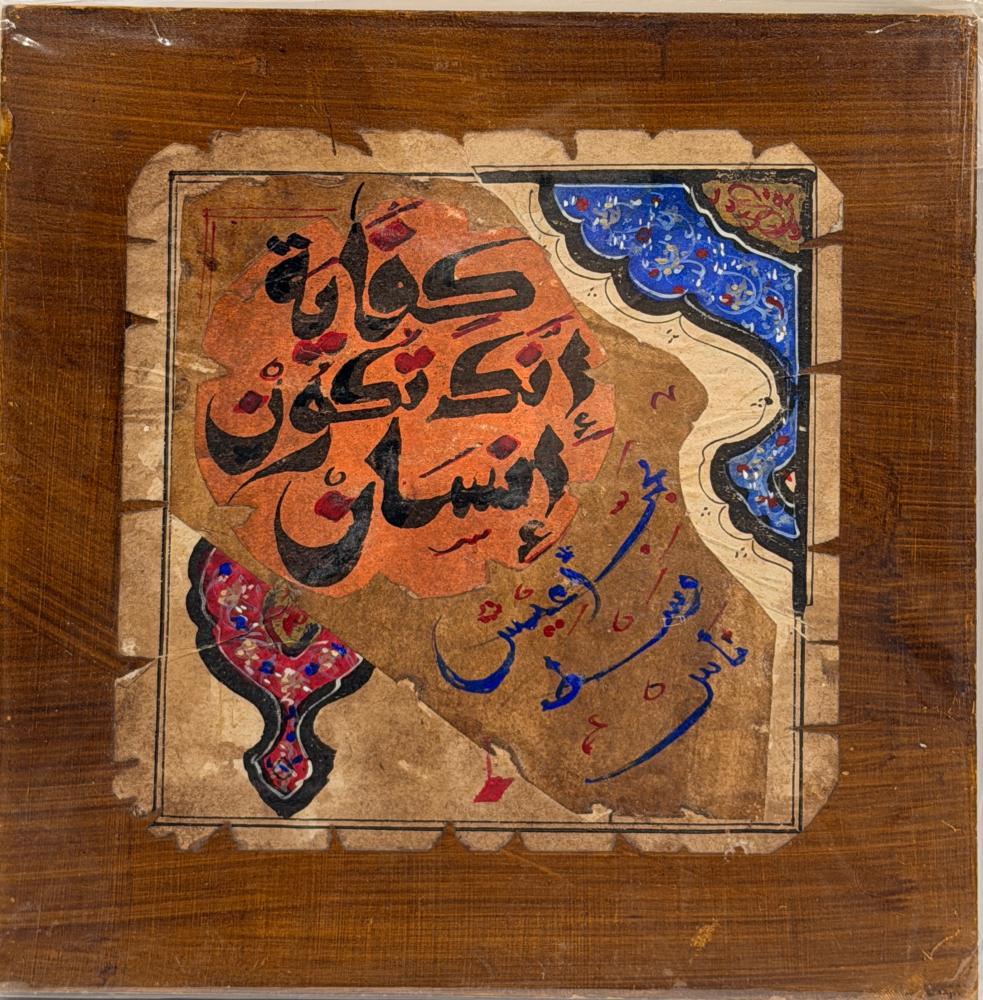 كفاية
إنك تكونْ
إنسانْ
تعيش
وسط
ناس